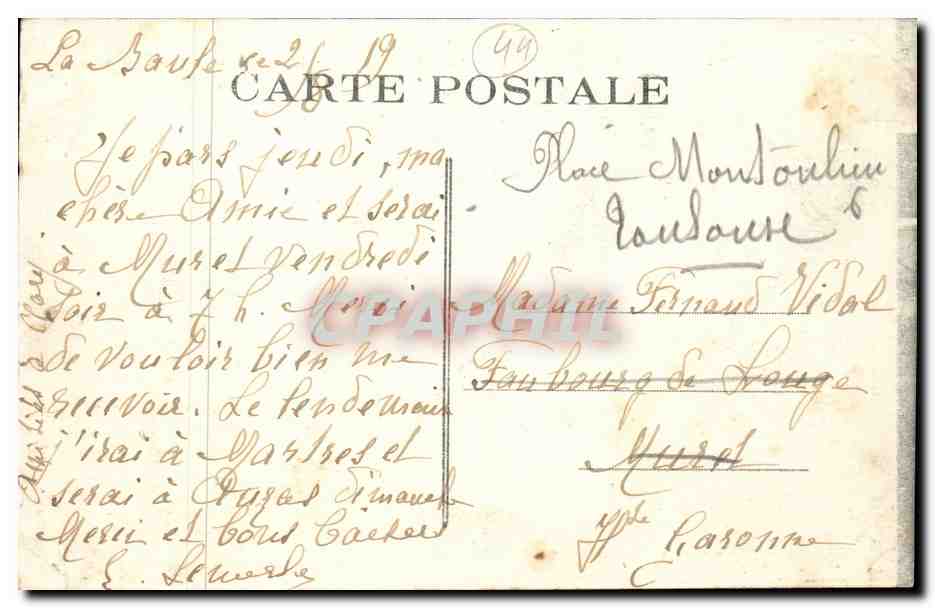 La Baule le 2/ 19
44
CARTE POSTALE
Je pars jeudi, ma
chère Amie et serai
à Muret vendredi
soir à 7 h. Merci
de vouloir bien me
recevoir. Le lendemain
j'irai à Martres et
serai à dimanche
Merci et bons baisers
Amitiés à
Place Montoulieu
6
Toulouse
Madame Fernand Vidal
Faubourg de Louge
Muret
Hte Garonne
CPAPHIL